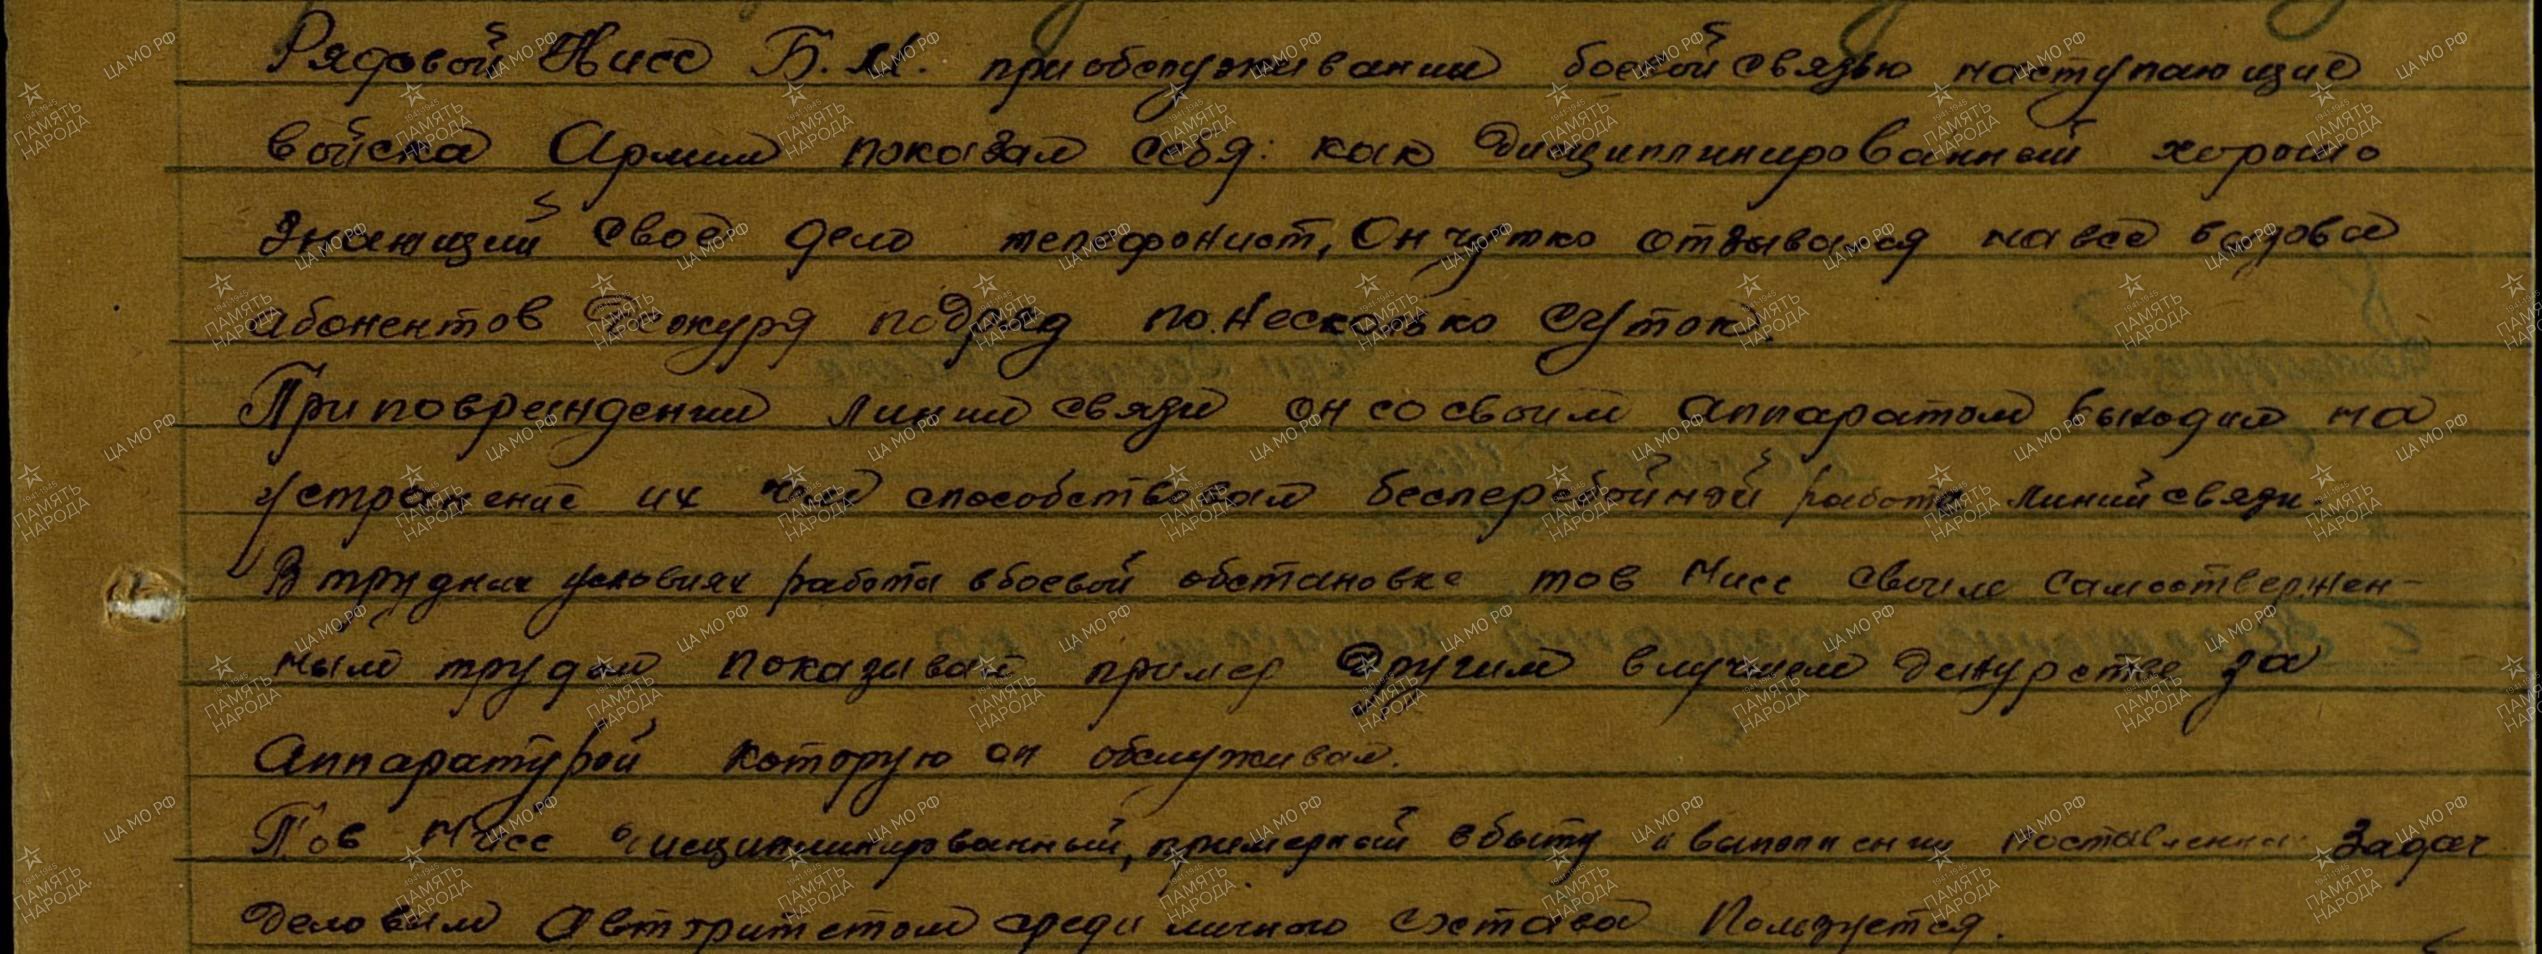 Рядовой Нисс Б.М. при обслуживании боевой связью наступающие
войска Армии показал себя: как дисциплинированный хорошо
знающий свое дело телефонист, Он чутко отзывался на все
абонентов Дежуря подряд по несколько суток.
При повреждении линии связи он со своим аппаратом выходил на
устранение их чем способствовал бесперебойной работе линий связи.
В трудных условиях работы в боевой обстановке тов Нисс своим самоотвержен-
ным трудом показывал пример другим в лучшем дежурстве за
Аппаратурой которую он обслуживал.
Тов Нисс дисциплинированный, примерный в быту и выполнении поставленных задач
Деловым Авторитетом среди личного состава Пользуется.